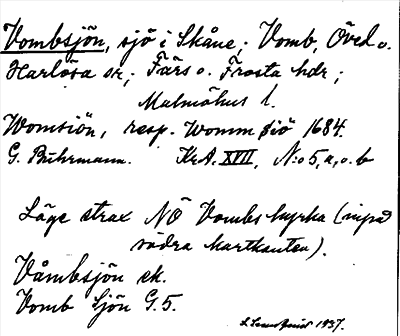 Vombsjön, sjö i Skåne; Vomb, Öved o.
Harlösa sr; Färs o. Frosta hdr;
Malmöhus l.
Womsiön, resp. Womm siö 1684.
G. Buhrmann. KrA. XVII, N:o 5, a, o. b
Läge strax NÖ Vombs kyrka (inpå
södra kartkanten).
Våmbsjön ek.
Vomb Sjön G.5.
1937.